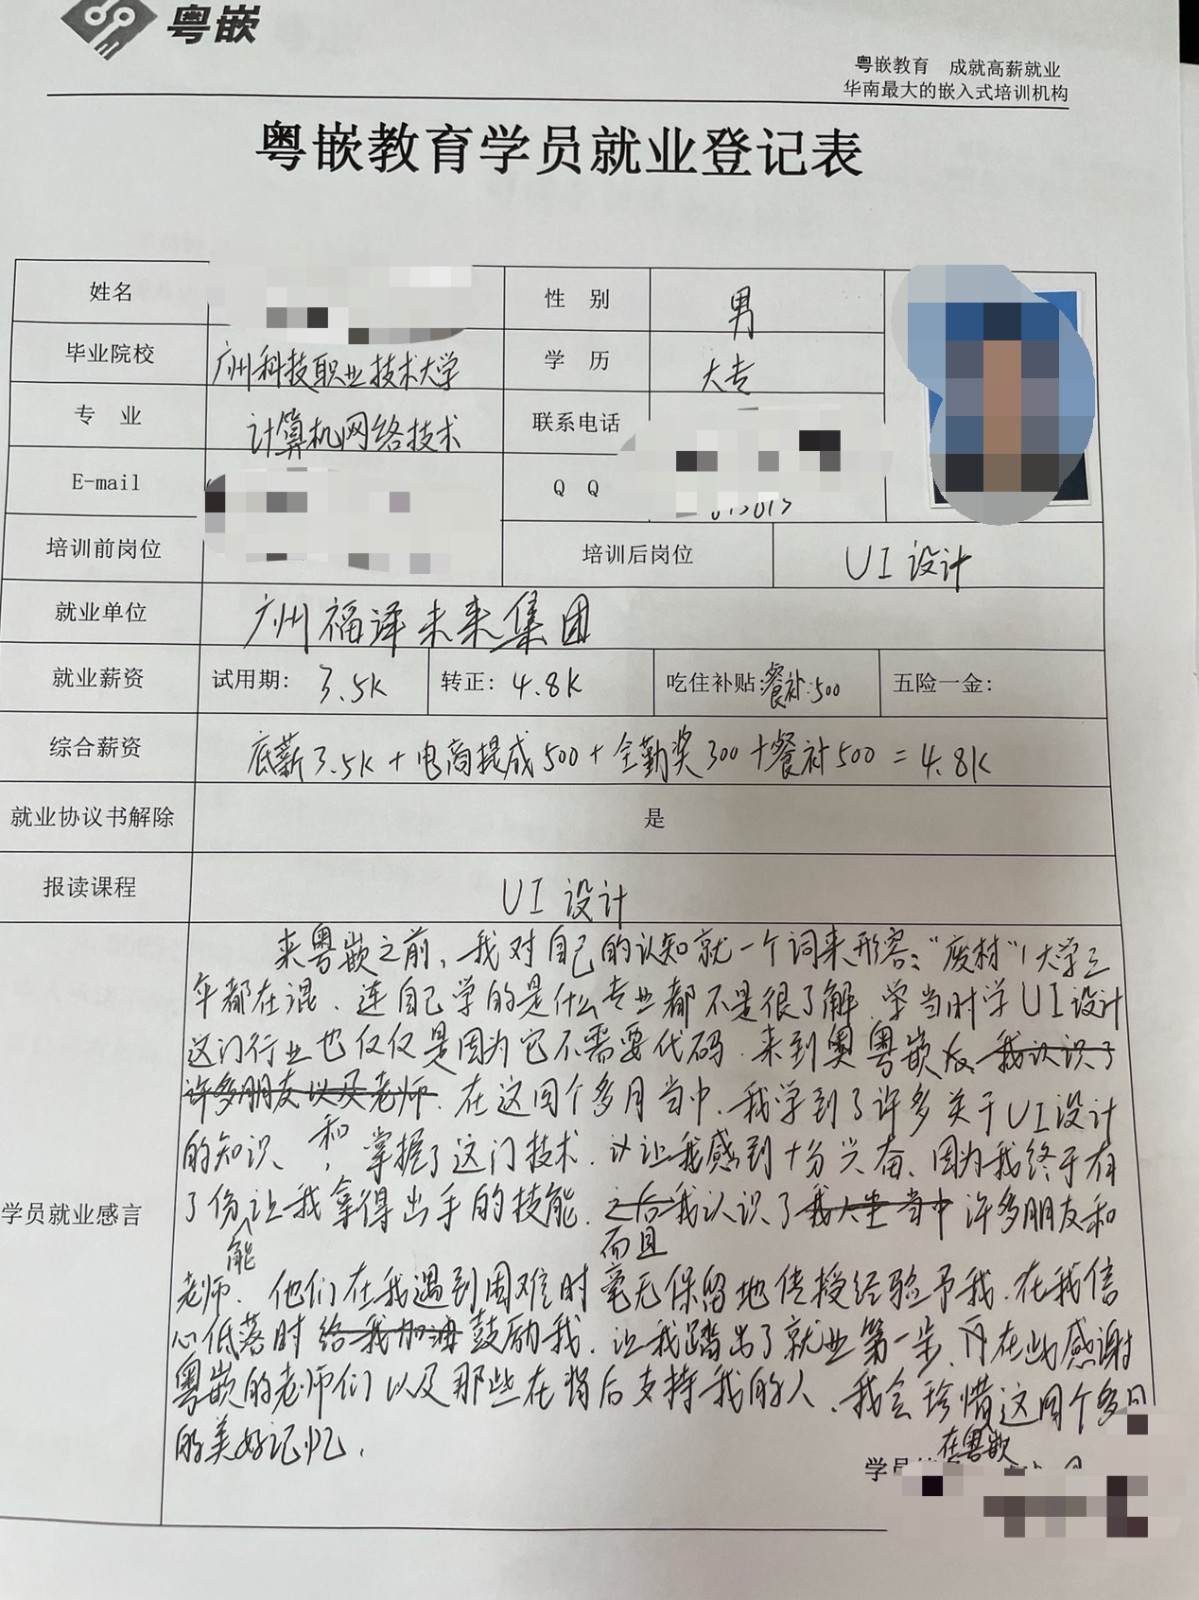 粤嵌
粤嵌教育 成就高薪就业
华南最大的嵌入式培训机构
粤嵌教育学员就业登记表
姓名 性 别 男
毕业院校 广州科技职业技术大学 学 历 大专
专 业 计算机网络技术 联系电话
E-mail Q Q
培训前岗位 培训后岗位 UI 设计
就业单位 广州福泽未来集团
就业薪资 试用期: 3.5K 转正: 4.8K 吃住补贴:餐补:500 五险一金:
综合薪资 底薪3.5K+电商提成500+全勤奖300+餐补500=4.8K
就业协议书解除 是
报读课程 UI 设计
学员就业感言
来粤嵌之前,我对自己的认知就一个词来形容:“废材”!大学三
年都在混.连自己学的是什么专业都不是很了解.学当时学UI设计
这门行业也仅仅是因为它不需要代码.来到奥粤嵌后我认识了
许多朋友以及老师.在这四个多月当中.我学到了许多关于UI设计
的知识、和,掌握了这门技术.让我感到十分兴奋、因为我终于有
了份能让我拿得出手的技能.之后我认识了 当中 许多朋友和
而且
老师.他们在我遇到困难时毫无保留地传授经验予我.在我信
心低落时给我加油鼓励我.让我踏出了就业第一步.在此感谢
粤嵌的老师们以及那些在背后支持我的人.我会珍惜这四个多月
在粤嵌
的美好记忆.
学员